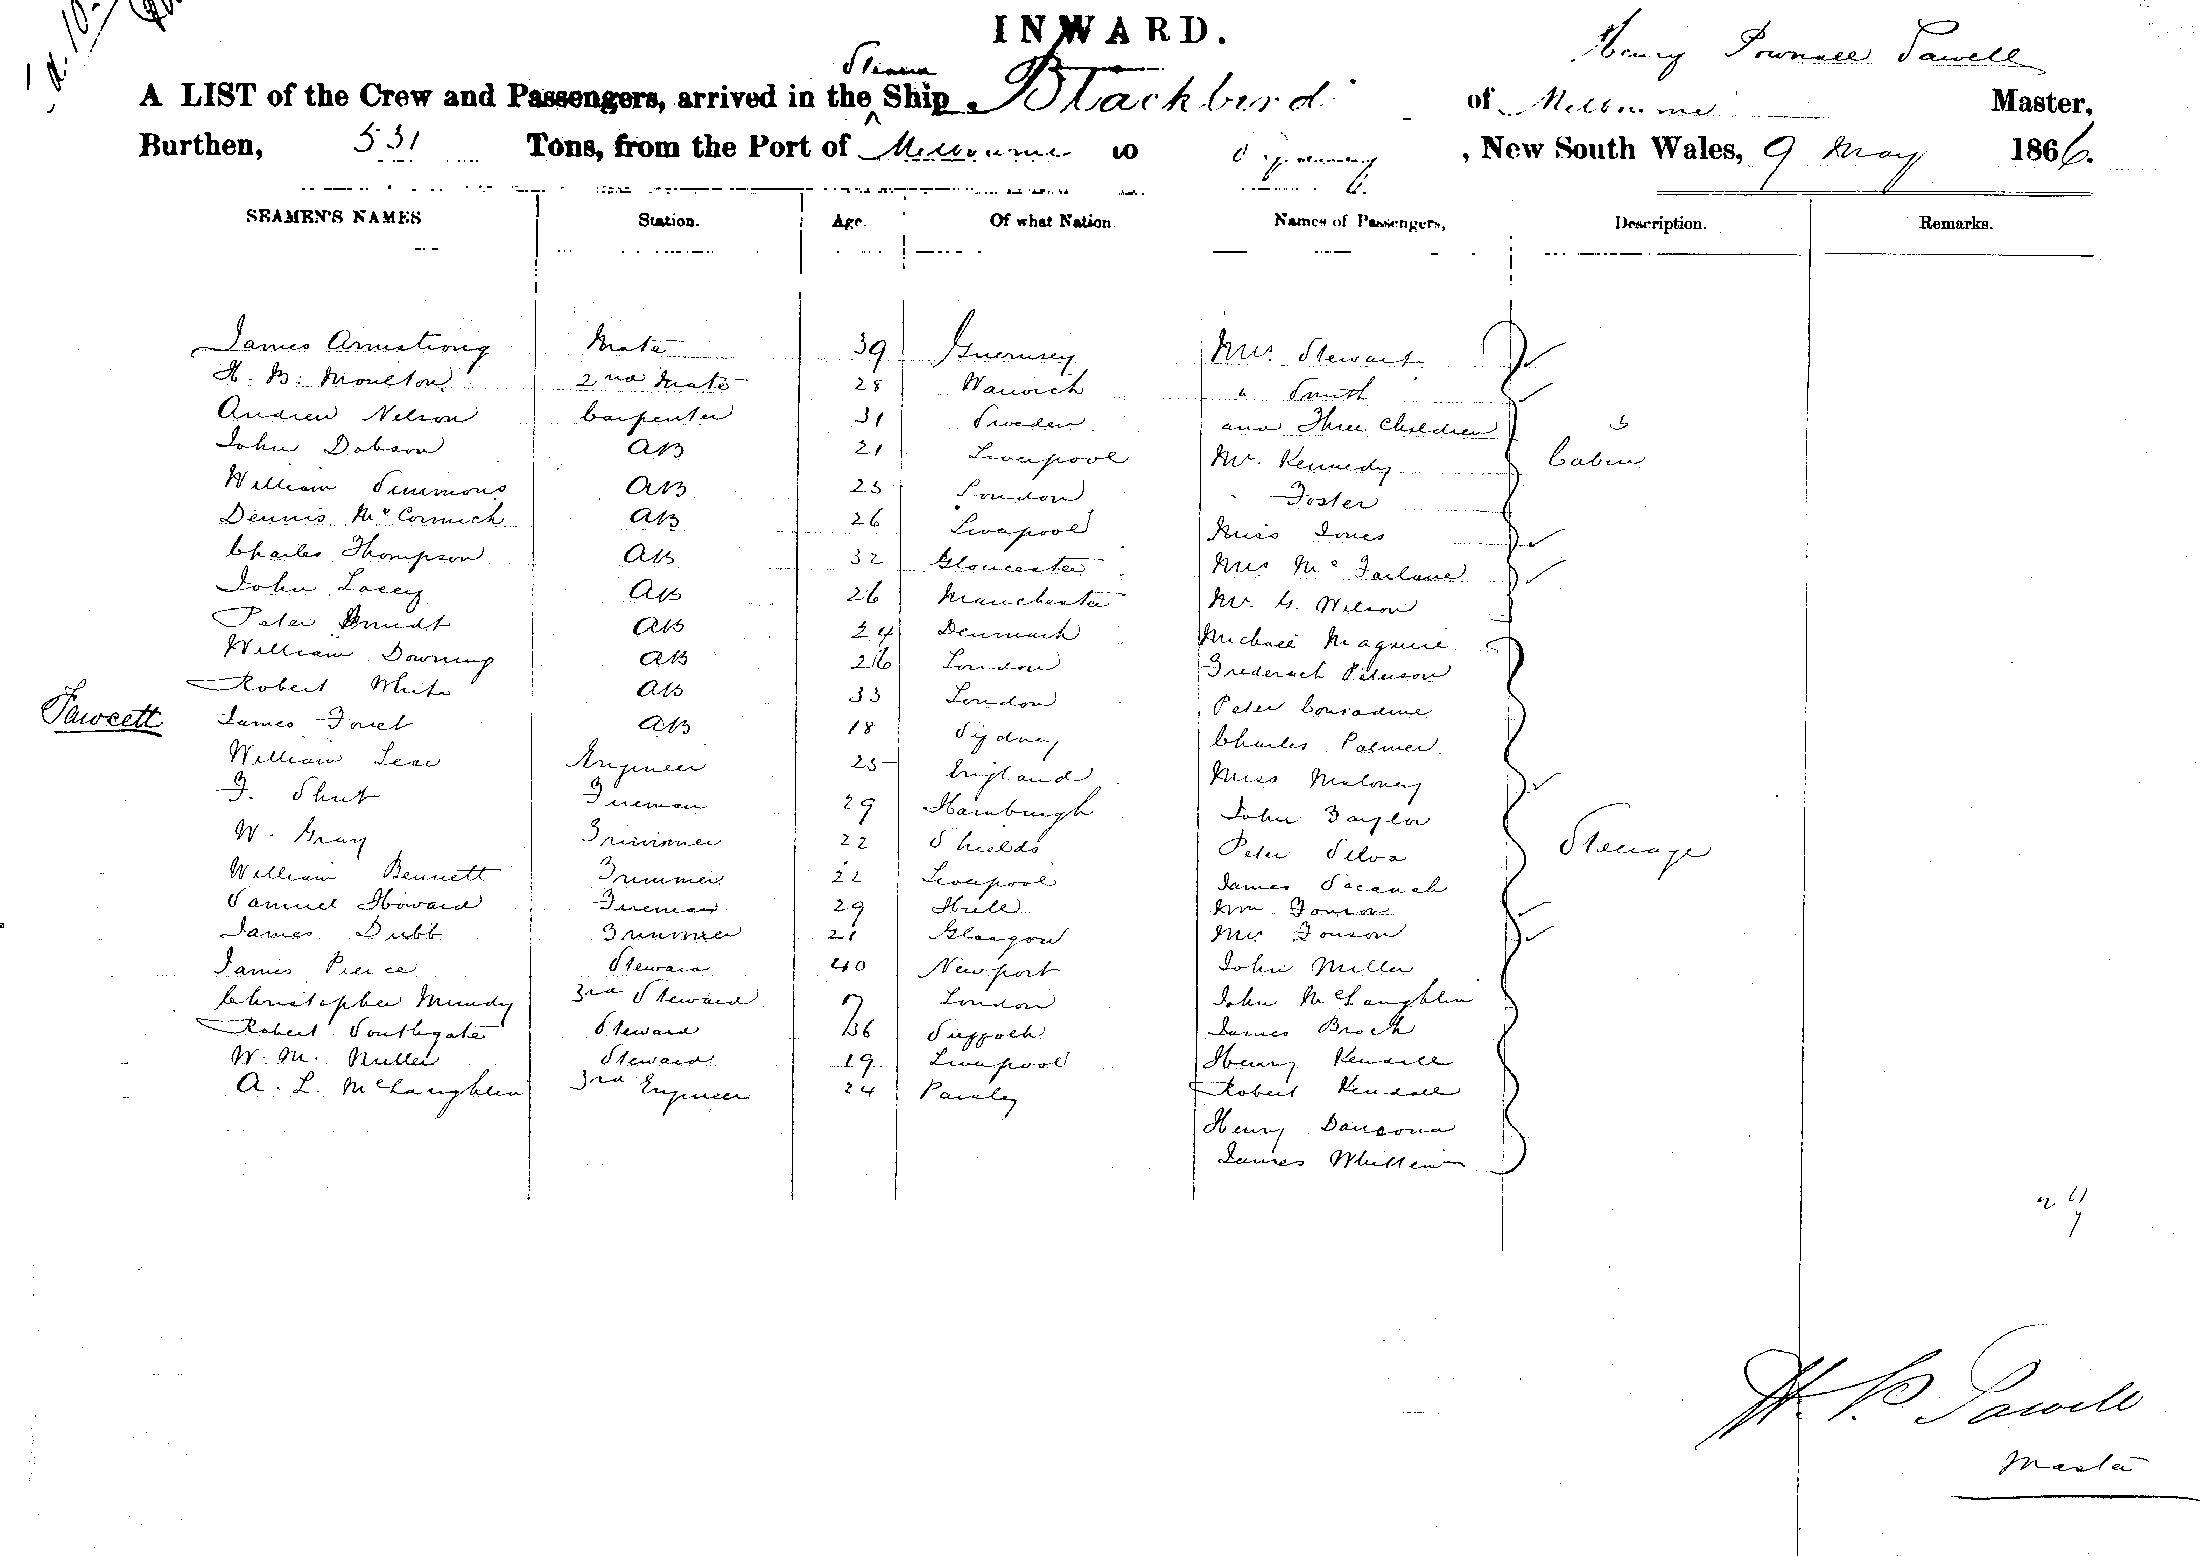 INWARD.
Henry Pownall Sawell
A LIST of the Crew and Passengers, arrived in the Steam Ship Blackbird of Melbourne Master,
Burthen, 531 Tons, from the Port of Melbourne to Sydney, New South Wales, 9 May 1866.
SEAMEN'S NAMES Station. Age. Of what Nation Names of Passengers, Description. Remarks.
James Armstrong Mate 39 Guernsey Mrs. Stewart
H. B. Moulton 2nd Mate 28 Warwick " Smith
Andrew Nelson Carpenter 31 Sweden and Three Children 3
John Dobson AB 21 Liverpool Mr. Kennedy Cabin
William Simmons AB 25 London Foster
Dennis McCormick AB 26 Liverpool Miss Jones
Charles Thompson AB 32 Gloucester Mrs McFarlane
John Lacey AB 26 Manchester Mr. G. Wilson
Peter AB 24 Denmark Michael Maguire
William Downing AB 26 London Frederick
Robert White AB 33 London Peter Considine
Fawcett James AB 18 Sydney Charles Palmer
William Engineer 25 England Miss Maloney
F. Fireman 29 Hamburgh John Taylor
W. Gray Trimmer 22 Shields Peter Silva
William Bennett Trimmer 22 Liverpool James
Samuel Howard Fireman 29 Hull Wm
James Dubb Trimmer 21 Glasgow Mrs
James Pierce Steward 40 Newport John Miller
Christopher Mundy 3rd Steward London John McLaughlin
Robert Southgate Steward 36 Suffolk James Brock
W. M. Steward 19 Liverpool Henry Kendall
A. L. McLaughlin 3rd Engineer 24 Paisley Robert Kendall
Henry
James Whitten
Steerage
H. P. Sawell
Master